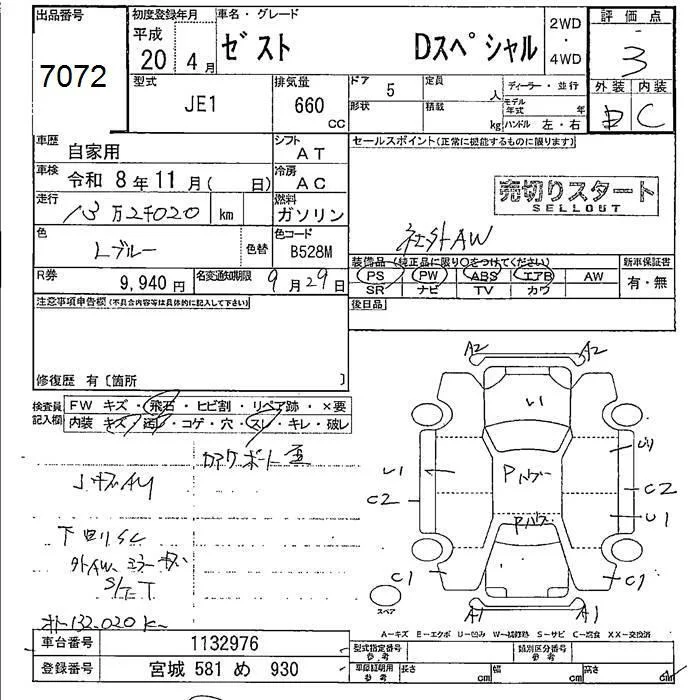 出品番号 初度登録年月 車名・グレード 2WD・4WD 評価点
7072 平成 20年 4月 ゼスト Dスペシャル 3
型式 排気量 ドア 5 定員 人 ディーラー・並行 外装 内装
JE1 660 CC 形状 積載 kg モデル年式 年 C
ハンドル 左・右
車歴 自家用 シフト AT セールスポイント(正常に機能するものに限ります)
車検 令和 8年 11月( 日) 冷房 AC
売切りスタート
SELLOUT
走行 13万2千020 km 燃料 ガソリン
社外AW
色 Lブルー 色替 色コード B528M
装備品(純正品に限り○をつけてください) 新車保証書
PS PW ABS エアB AW 有・無
SR ナビ TV カワ
R券 9,940円 名変通知期限 9月29日
後日品
注意事項申告欄(不具合内容等は具体的に記入して下さい)
修復歴 有〔箇所 〕
検査員記入欄 FW キズ・飛石・ヒビ割・リペア跡・×要
内装 キズ・汚レ・コゲ・穴・スレ・キレ・破レ
A2 A2
U1
U1
Pハゲ
C2 C2
Pハゲ U1
下回りSC
C1 C1
スペア
A1 A1
132,020K
A―キズ E―エクボ U―凹み W―補修跡 S―サビ C―腐食 XX―交換済
車台番号 1132976 型式指定番号 参考 類別区分番号 参考
登録番号 宮城 581 め 930 車庫証明用 参考 長さ cm 幅 cm 高さ cm